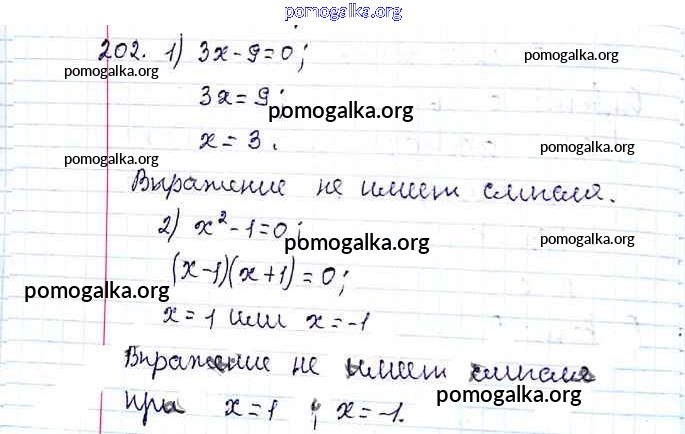 pomogalka.org
202. 1) 3x-9=0;
pomogalka.org pomogalka.org
3x=9;
pomogalka.org
x=3.
pomogalka.org pomogalka.org
Выражение не имеет смысла.
2) x²-1=0;
pomogalka.org pomogalka.org
(x-1)(x+1)=0;
pomogalka.org
x=1 или x=-1
Выражение не имеет смысла
pomogalka.org
при x=1 ; x=-1.